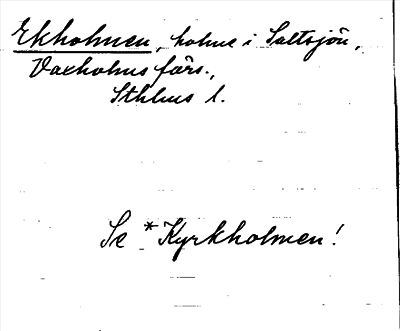 Ekholmen, holme i Saltsjön,
Vaxholms förs.,
Sthlms l.
Se *Kyrkholmen!